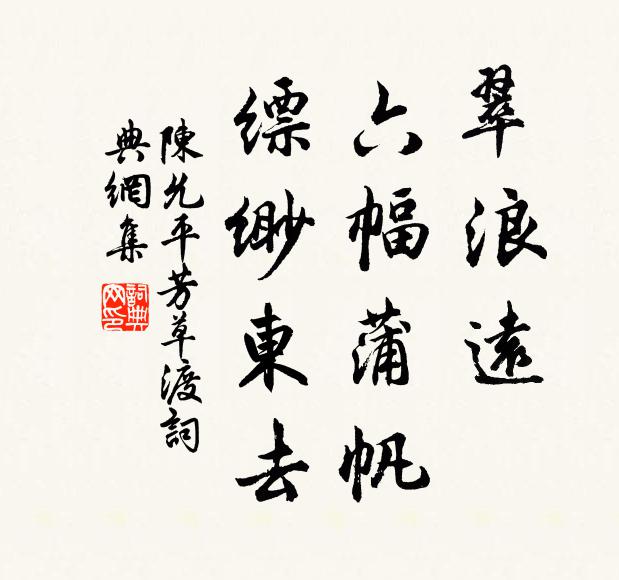 翠浪遠
六幅蒲帆
縹緲東去
陳允平芳草渡詞
典網集
詞典網